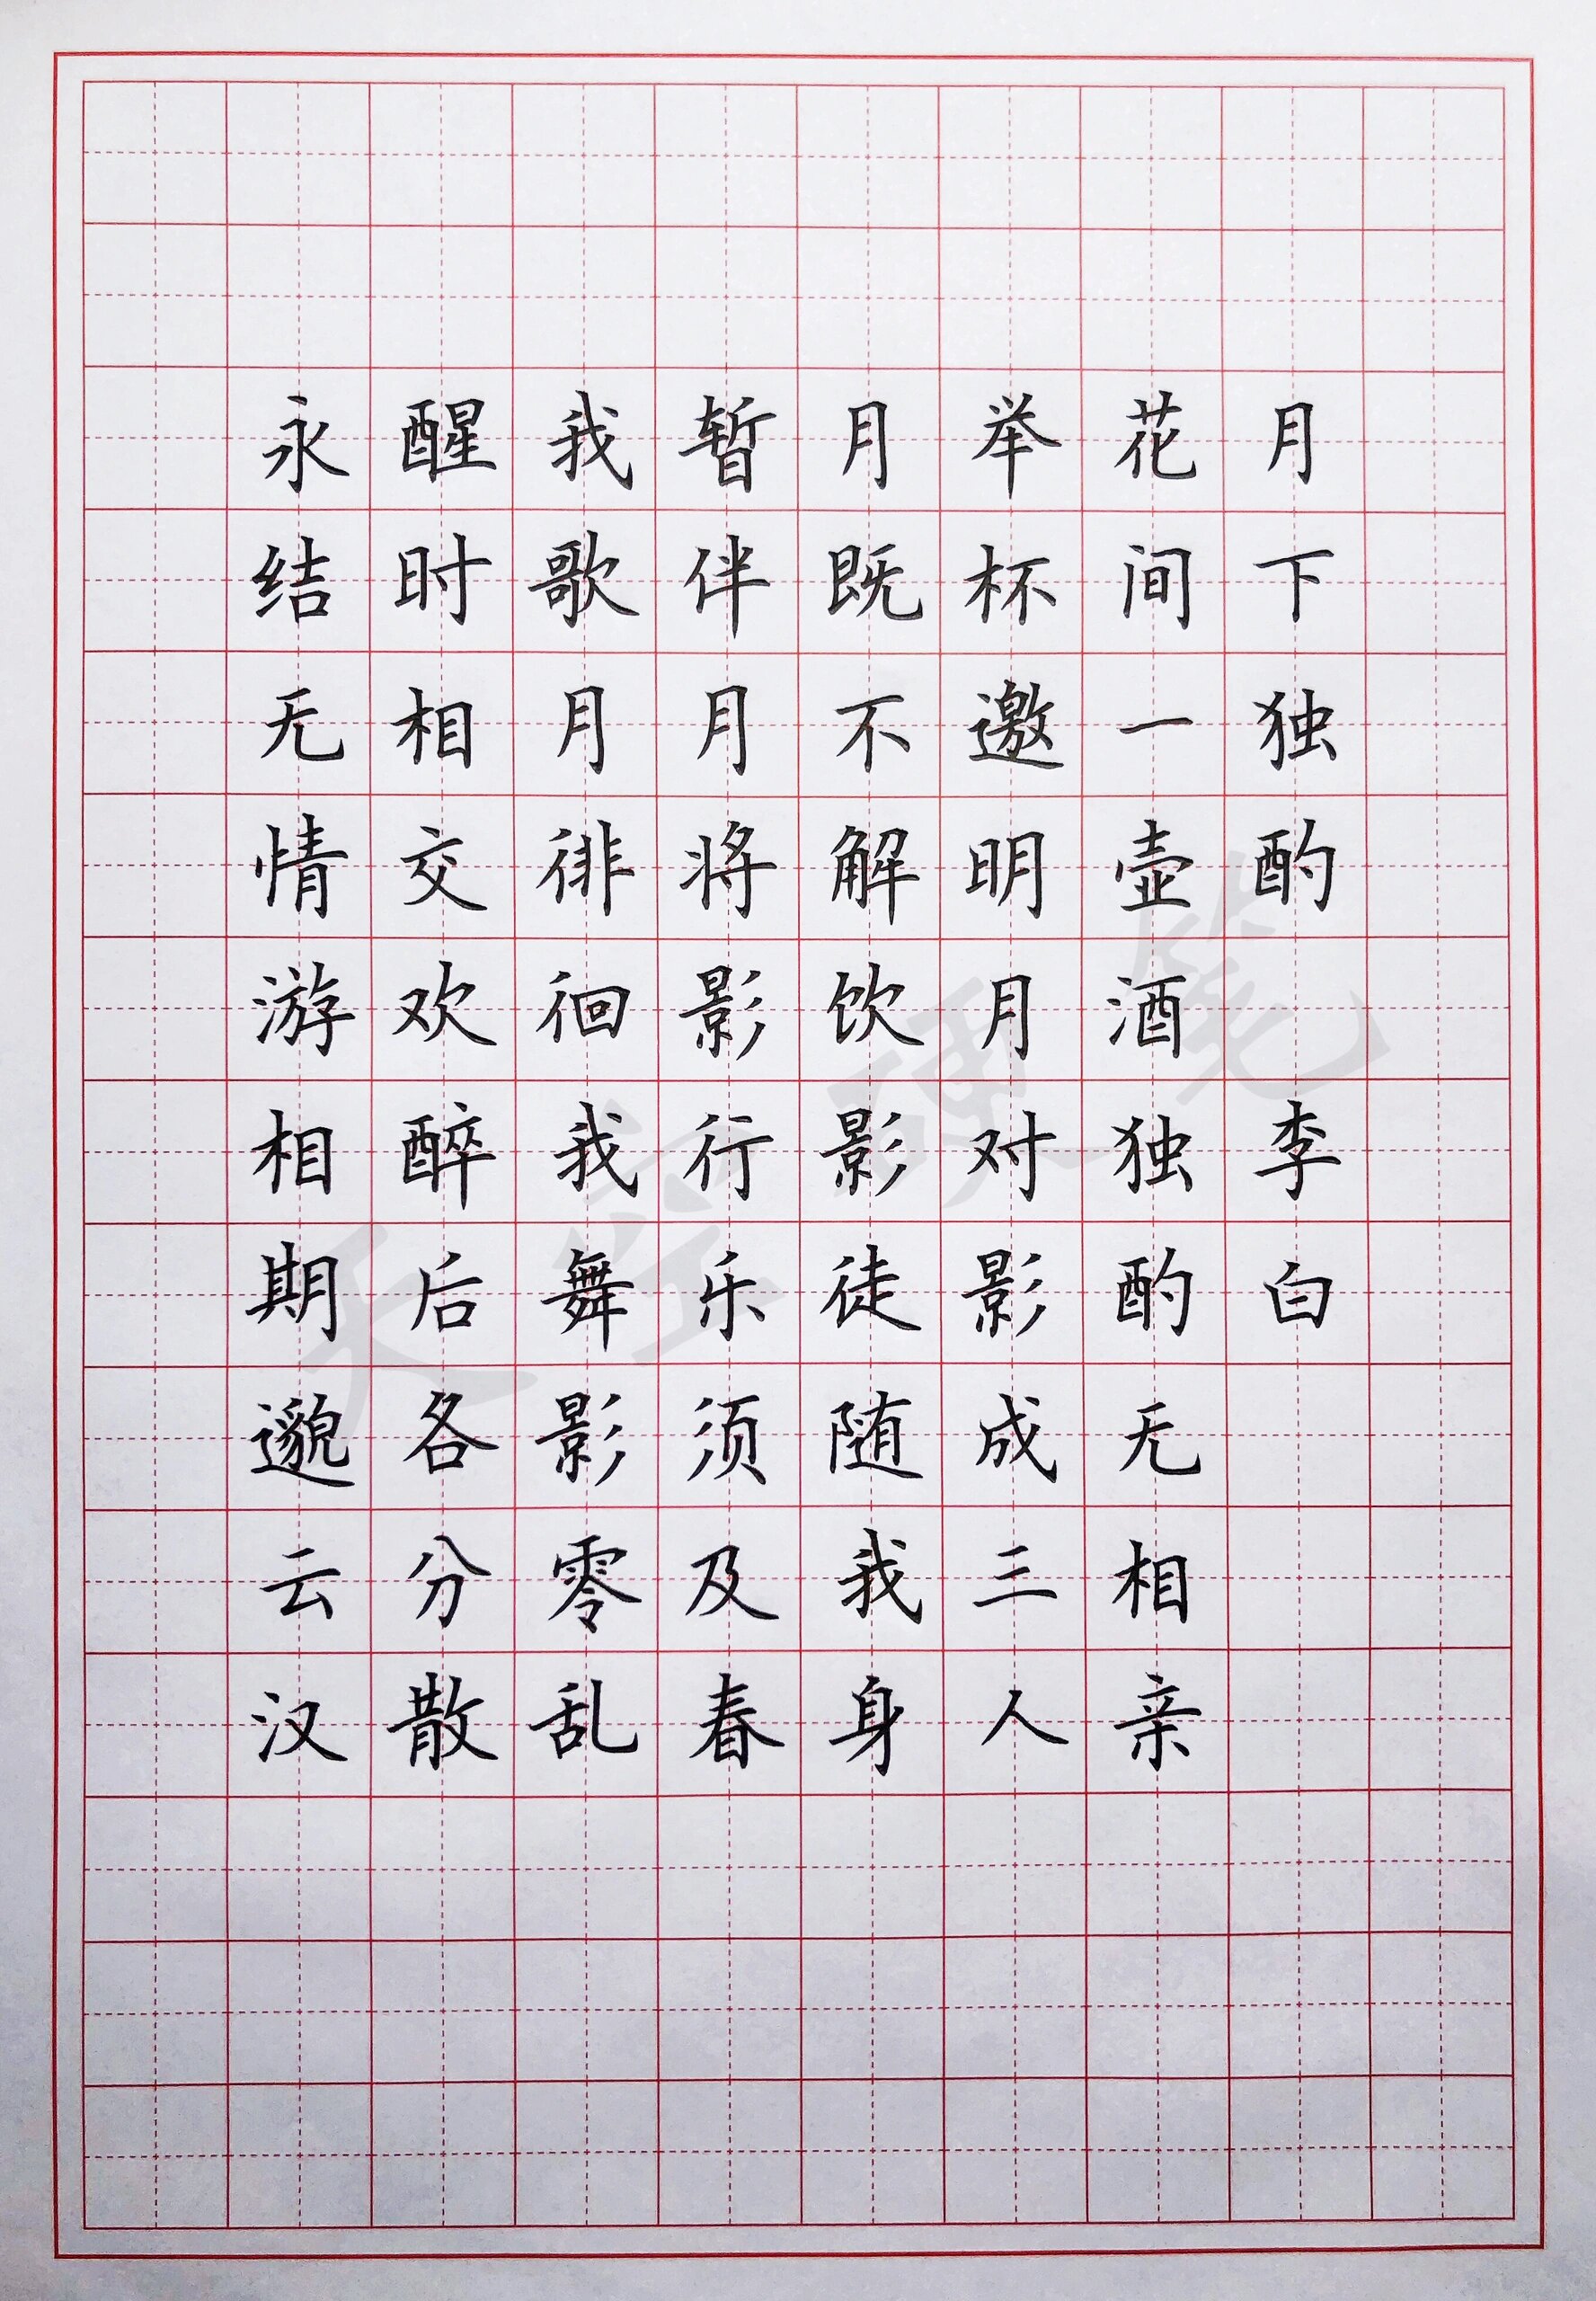 月下独酌 李白
花间一壶酒独酌无相亲
举杯邀明月对影成三人
月既不解饮影徒随我身
暂伴月将影行乐须及春
我歌月徘徊我舞影零乱
醒时相交欢醉后各分散
永结无情游相期邈云汉
天空硬笔